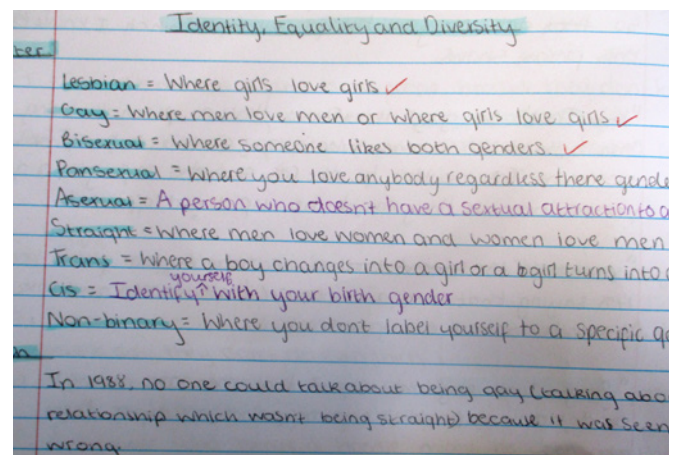 Identity, Equality and Diversity
ter
Lesbian = Where girls love girls ✓
Gay = Where men love men or where girls love girls ✓
Bisexual = Where someone likes both genders. ✓
Pansexual = Where you love anybody regardless there gende
Asexual = A person who doesn't have a sextual attraction to a
Straight = Where men love women and women love men
Trans = Where a boy changes into a girl or a girl turns into
yourself
Cis = Identify ^ with your birth gender
Non-binary = Where you dont label yourself to a specific ge
In 1988, no one could talk about being gay (talking abo
relationship which wasn't being straight) because it was seen
wrong.